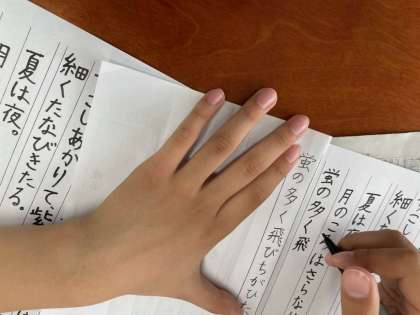 細く
夏は夜
月のころはさらな
蛍の多く飛
蛍の多く飛びちがひた
こしあかりて、紫
細くたなびきたる。
夏は夜。
月